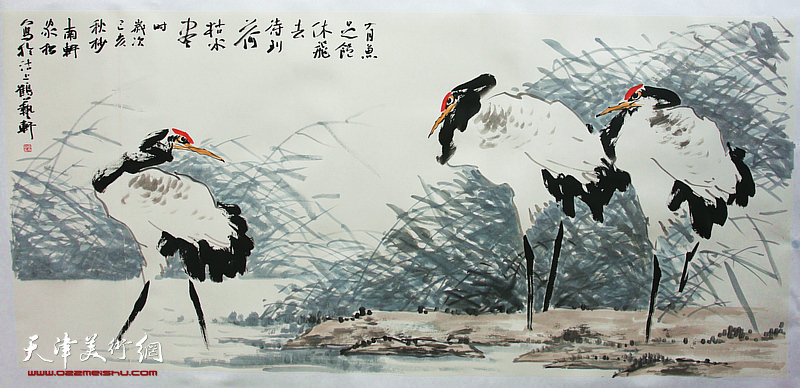 有魚
足飽
休飛
去
待到
荷
枯水
盡
時
歲次
己亥
秋杪
南軒
松
寫於沽上鶴藝軒
天津美術網
www.022meishu.com